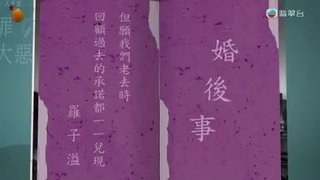 翡翠台
罪
大惡
婚後事
但願我們老去時
回顧過去的承諾都一一兌現
羅子溢